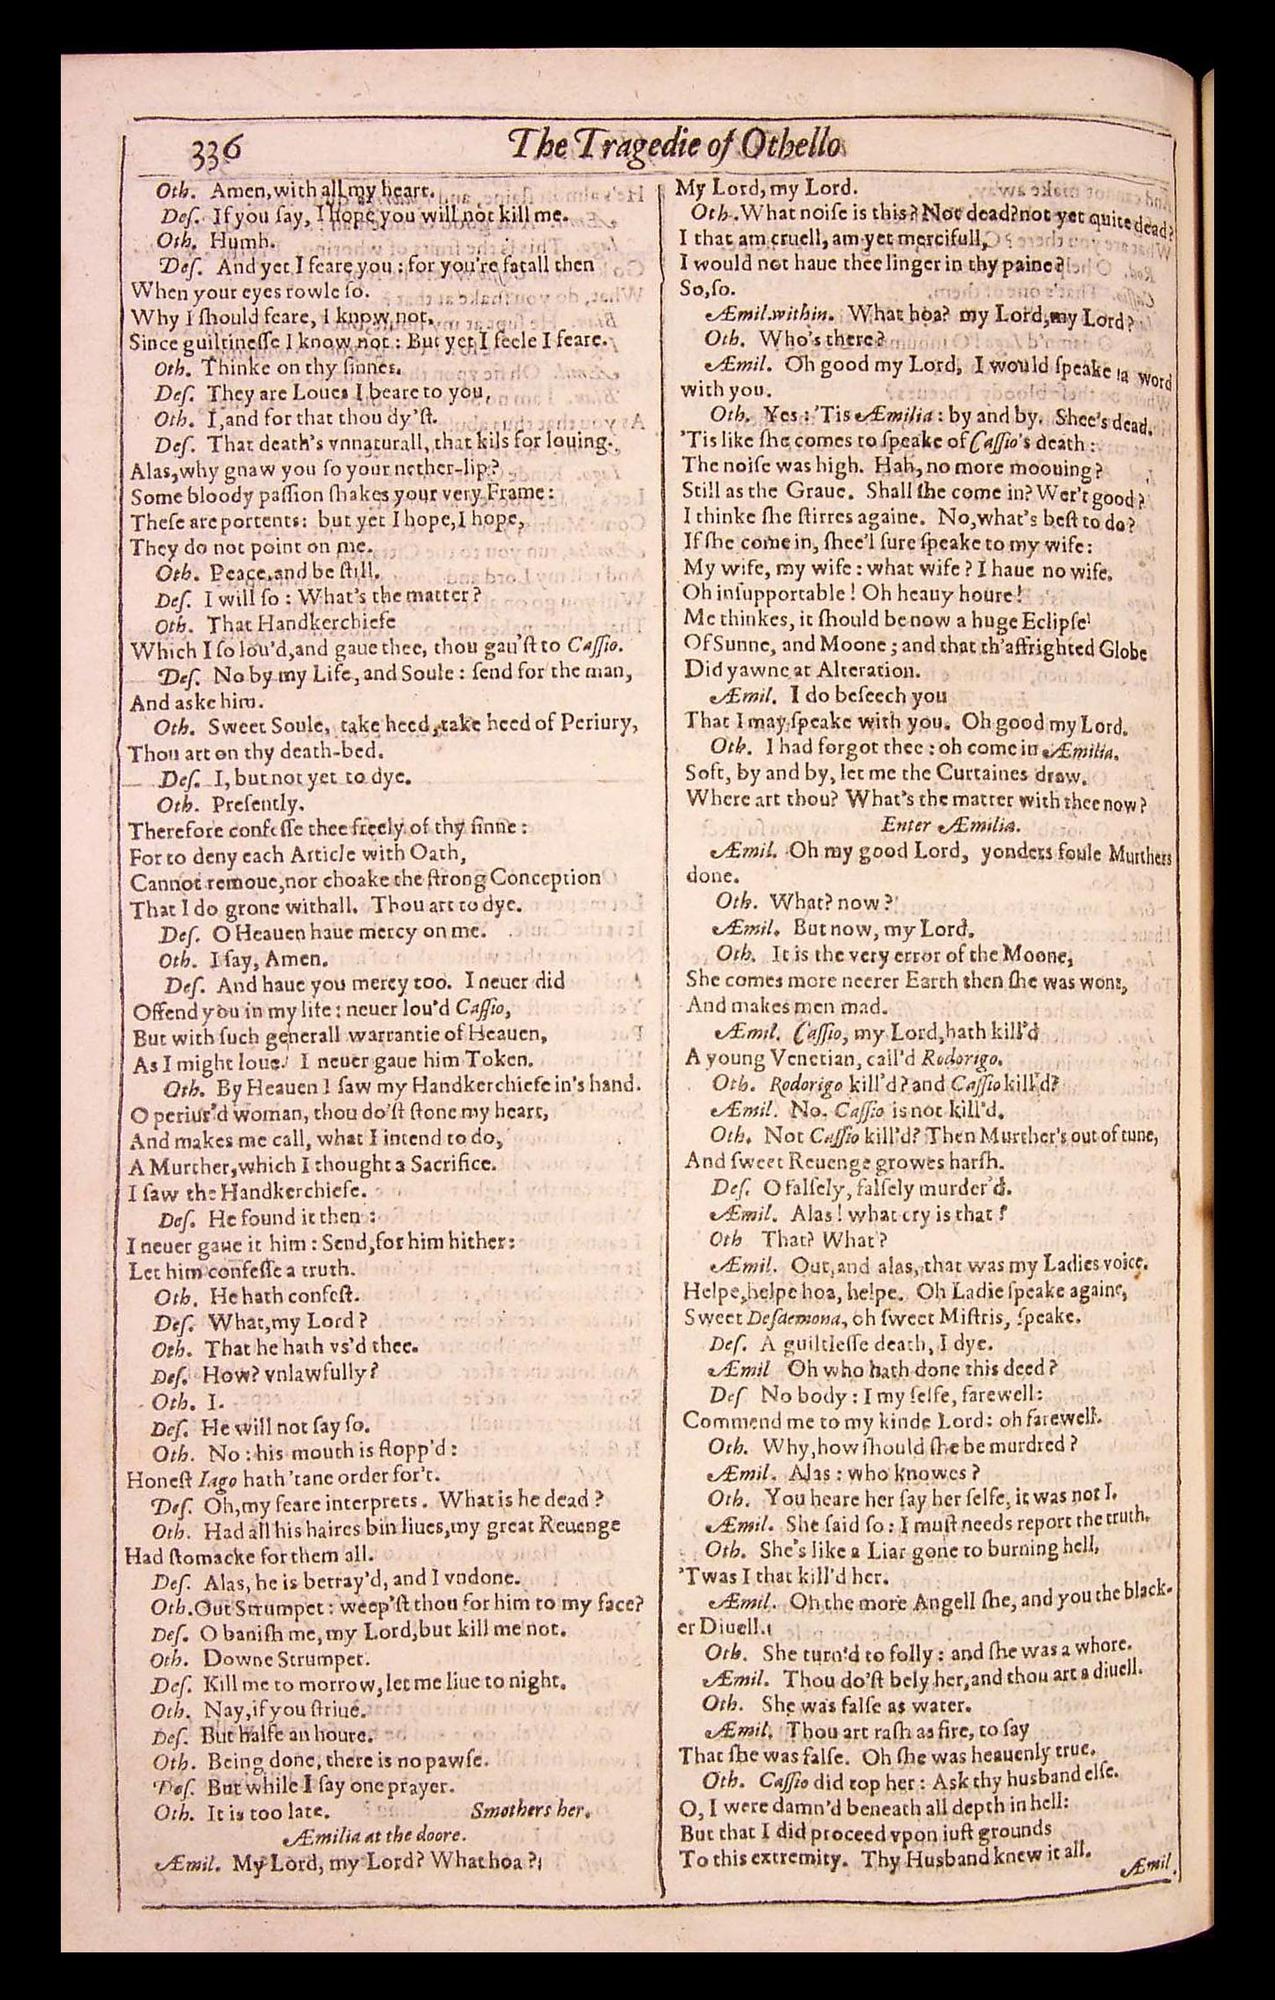 336
The Tragedie of Othello
Oth. Amen, with all my heart.
Des. If you say, I hope you will not kill me.
Oth. Humh.
Des. And yet I feare you: for you're fatall then
When your eyes rowle so.
Why I should feare, I know not,
Since guiltinesse I know not: But yet I feele I feare.
Oth. Thinke on thy sinnes.
Des. They are Loues I beare to you,
Oth. I, and for that thou dy'st.
Des. That death's vnnaturall, that kils for louing.
Alas, why gnaw you so your nether-lip?
Some bloody passion shakes your very Frame:
These are portents: but yet I hope, I hope,
They do not point on me.
Oth. Peace, and be still.
Des. I will so: What's the matter?
Oth. That Handkerchiefe
Which I so lou'd, and gaue thee, thou gau'st to Cassio.
Des. No by my Life, and Soule: send for the man,
And aske him.
Oth. Sweet Soule, take heed, take heed of Periury,
Thou art on thy death-bed.
Des. I, but not yet to dye.
Oth. Presently.
Therefore confesse thee freely of thy sinne:
For to deny each Article with Oath,
Cannot remoue, nor choake the strong Conception
That I do grone withall. Thou art to dye.
Des. O Heauen haue mercy on me.
Oth. I say, Amen.
Des. And haue you mercy too. I neuer did
Offend you in my life: neuer lou'd Cassio,
But with such generall warrantie of Heauen,
As I might loue. I neuer gaue him Token.
Oth. By Heauen I saw my Handkerchiefe in's hand.
O periur'd woman, thou do'st stone my heart,
And makes me call, what I intend to do,
A Murther, which I thought a Sacrifice.
I saw the Handkerchiefe.
Des. He found it then:
I neuer gaue it him: Send, for him hither:
Let him confesse a truth.
Oth. He hath confest.
Des. What, my Lord?
Oth. That he hath vs'd thee.
Des. How? vnlawfully?
Oth. I.
Des. He will not say so.
Oth. No: his mouth is stopp'd:
Honest Iago hath 'tane order for't.
Des. Oh, my feare interprets. What is he dead?
Oth. Had all his haires bin liues, my great Reuenge
Had stomacke for them all.
Des. Alas, he is betray'd, and I vndone.
Oth. Out Strumpet: weep'st thou for him to my face?
Des. O banish me, my Lord, but kill me not.
Oth. Downe Strumpet.
Des. Kill me to morrow, let me liue to night.
Oth. Nay, if you striue.
Des. But halfe an houre.
Oth. Being done, there is no pawse.
Des. But while I say one prayer.
Oth. It is too late. Smothers her.
Æmilia at the doore.
Æmil. My Lord, my Lord? What hoa?
My Lord, my Lord.
Oth. What noise is this? Not dead? not yet quite dead?
I that am cruell, am yet mercifull,
I would not haue thee linger in thy paine?
So, so.
Æmil. within. What hoa? my Lord, my Lord?
Oth. Who's there?
Æmil. Oh good my Lord, I would speake a word
with you.
Oth. Yes: 'Tis Æmilia: by and by. Shee's dead.
'Tis like she comes to speake of Cassio's death:
The noise was high. Hah, no more moouing?
Still as the Graue. Shall she come in? Wer't good?
I thinke she stirres againe. No, what's best to do?
If she come in, shee'l sure speake to my wife:
My wife, my wife: what wife? I haue no wife.
Oh insupportable! Oh heauy houre!
Me thinkes, it should be now a huge Eclipse
Of Sunne, and Moone; and that th'affrighted Globe
Did yawne at Alteration.
Æmil. I do beseech you
That I may speake with you. Oh good my Lord.
Oth. I had forgot thee: oh come in Æmilia.
Soft, by and by, let me the Curtaines draw.
Where art thou? What's the matter with thee now?
Enter Æmilia.
Æmil. Oh my good Lord, yonders foule Murthers
done.
Oth. What? now?
Æmil. But now, my Lord.
Oth. It is the very error of the Moone,
She comes more neerer Earth then she was wont,
And makes men mad.
Æmil. Cassio, my Lord, hath kill'd
A young Venetian, call'd Rodorigo.
Oth. Rodorigo kill'd? and Cassio kill'd?
Æmil. No, Cassio is not kill'd.
Oth. Not Cassio kill'd? Then Murther's out of tune,
And sweet Reuenge growes harsh.
Des. O falsely, falsely murder'd.
Æmil. Alas! what cry is that?
Oth That? What?
Æmil. Out, and alas, that was my Ladies voice.
Helpe, helpe hoa, helpe. Oh Ladie speake againe,
Sweet Desdemona, oh sweet Mistris, speake.
Des. A guiltlesse death, I dye.
Æmil Oh who hath done this deed?
Des No body: I my selfe, farewell:
Commend me to my kinde Lord: oh farewell.
Oth. Why, how should she be murdred?
Æmil. Alas: who knowes?
Oth. You heare her say her selfe, it was not I.
Æmil. She said so: I must needs report the truth.
Oth. She's like a Liar gone to burning hell,
'Twas I that kill'd her.
Æmil. Oh the more Angell she, and you the black-
er Diuell.
Oth. She turn'd to folly: and she was a whore.
Æmil. Thou do'st bely her, and thou art a diuell.
Oth. She was false as water.
Æmil. Thou art rash as fire, to say
That she was false. Oh she was heauenly true.
Oth. Cassio did top her: Ask thy husband else.
O, I were damn'd beneath all depth in hell:
But that I did proceed vpon iust grounds
To this extremity. Thy Husband knew it all.
Æmil.